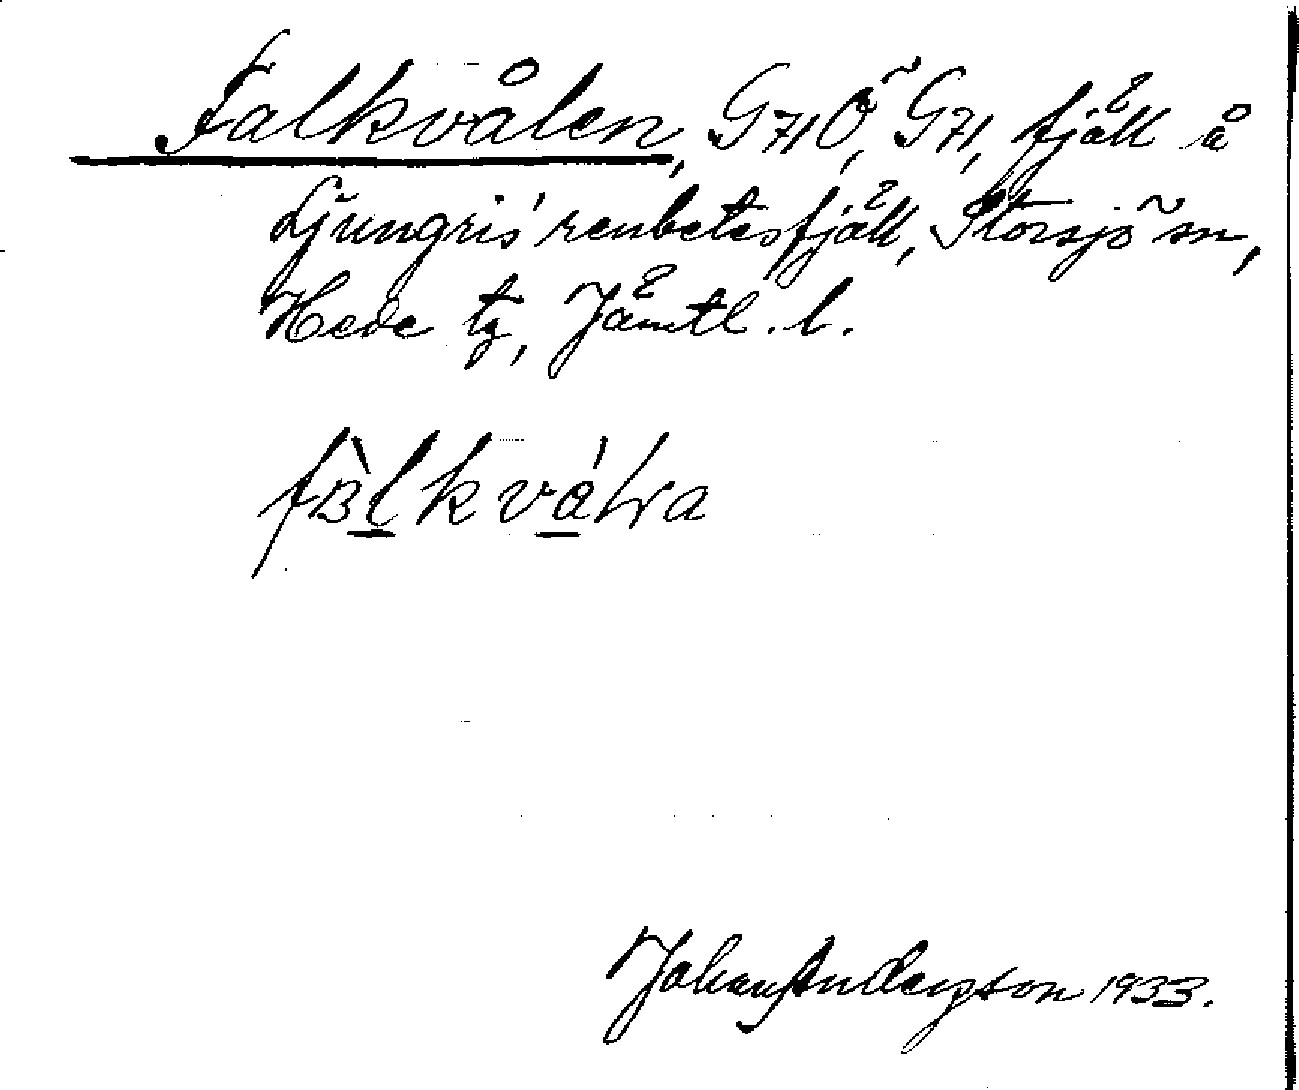 Falkvålen, G71Ö, G71, fjäll å
Ljungris' renbetesfjäll, Storsjö sn,
Hede tg, Jämtl. l.
Johan Andersson 1933.